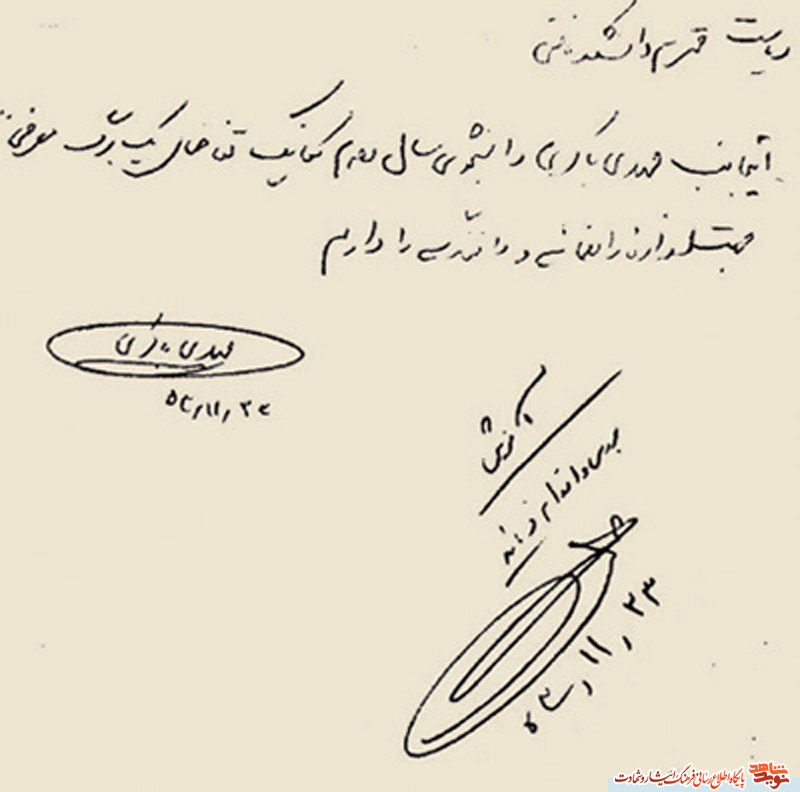 ریاست محترم دانشکده فنی
اینجانب مهدی باکری دانشجوی سال دوم مکانیک تقاضای یک برگ معرفی
جهت اداره راهنمائی و رانندگی را دارم
مهدی باکری
۵۲,۱۱,۲۳
آموزش
بررسی و اقدام فرمائید
۵۲,۱۱,۲۳
نوید شاهد
پایگاه اطلاع رسانی فرهنگ ایثار و شهادت